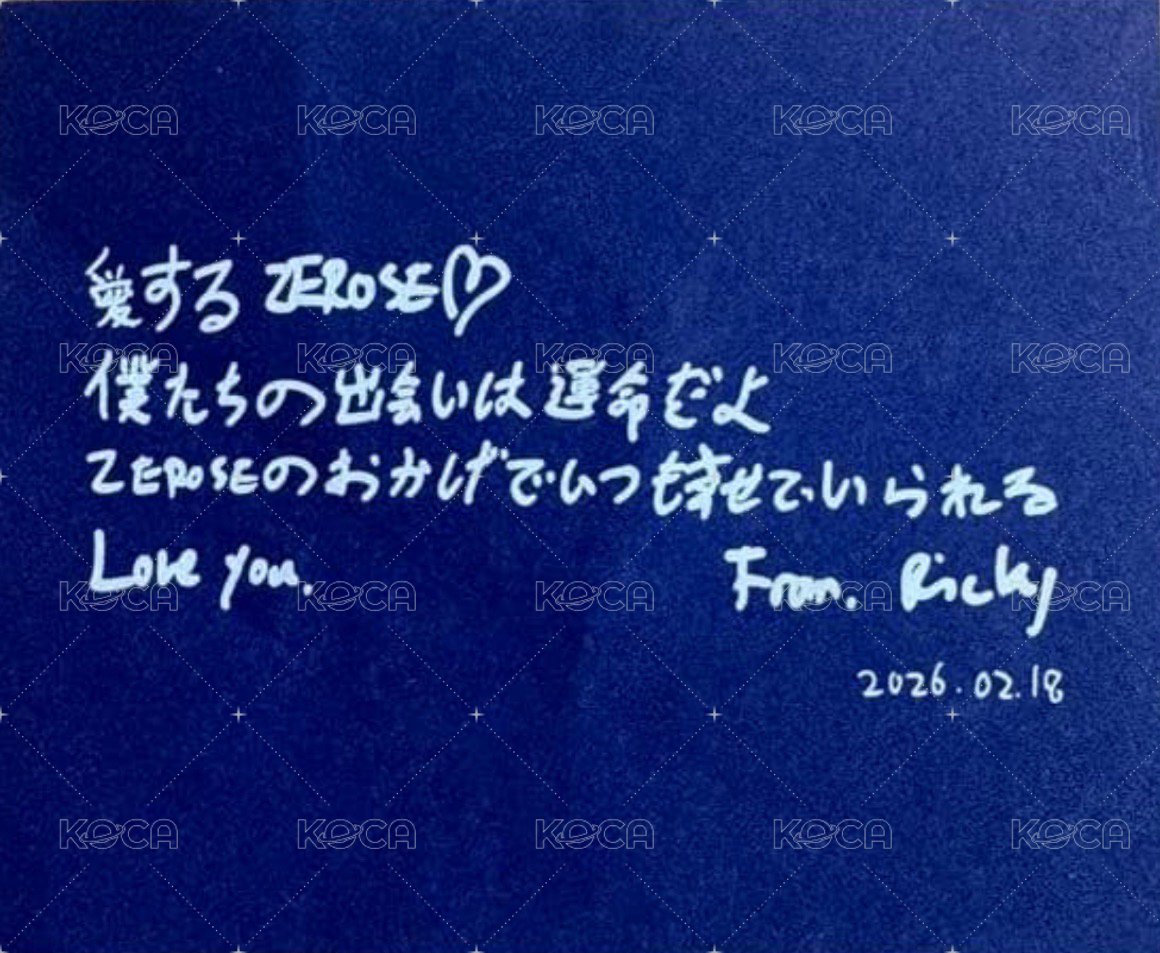 KOCA KOCA KOCA KOCA KOCA
愛する ZEROSE♡
KOCA KOCA KOCA KOCA KOCA
僕たちの出会いは運命だよ
ZEROSEのおかげでいつも幸せでいられる
Love you. From. Ricky
KOCA KOCA KOCA KOCA KOCA
2026.02.18
KOCA KOCA KOCA KOCA KOCA